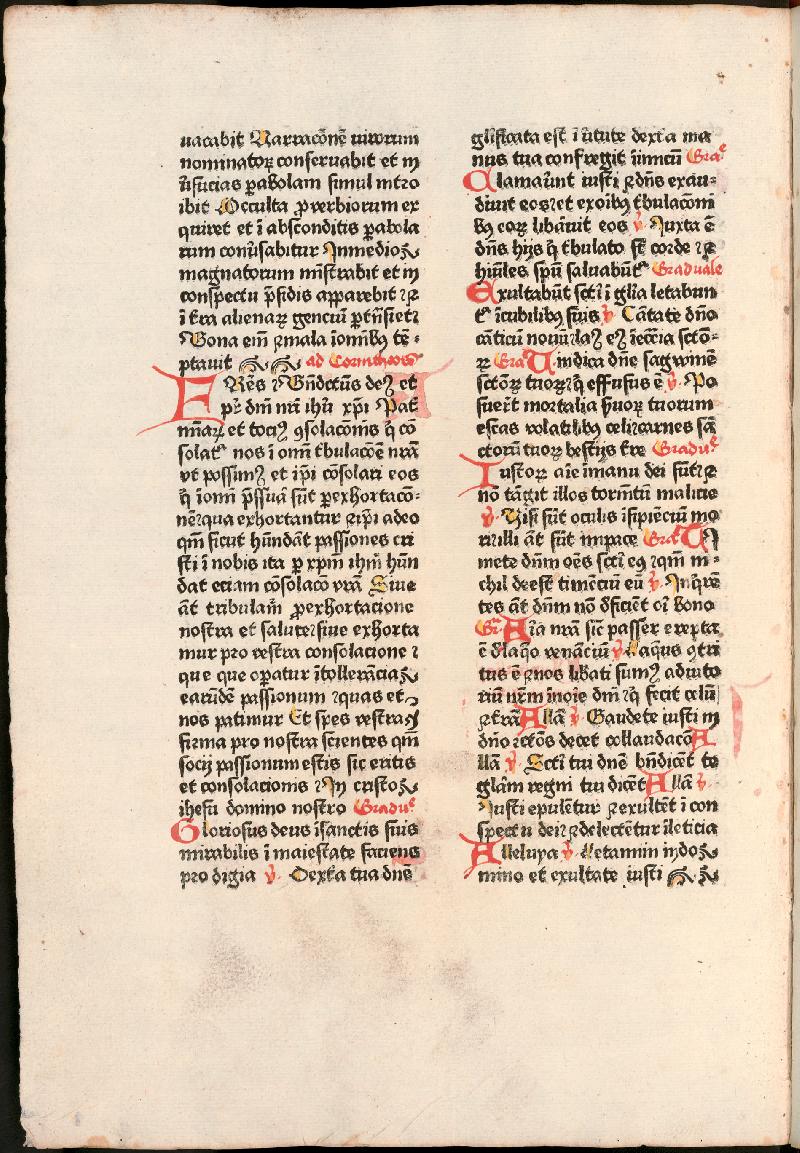 uacabit Narracōnē uirorum
nominatoꝝ conseruabit et in
ūsucias ꝑabolam simul intro
ibit Occulta ꝓverbiorum ex
quiret et ī absconditis ꝑabola
rum conūsabitur In medio
magnatorum mīstrabit et in
conspectu p̄sidis apparebit ⁊
ī t̄ra alienaꝝ genciū ꝑtn̄siet ⁊
Bona eīm ⁊ mala ī omībꝫ tē-
ptauit ad Corintheos
FRēs Bn̄dictūs deꝰ et
pr̄ dn̄i nr̄i ihū xp̄i Pat̄
mīaꝝ et tociꝰ ꝯsolacōnis q̄ cō
solat᷑ nos ī omī tbulacōe nrā
vt possimꝰ et ip̄i cōsolari eos
q̄ ī omī p̄ssua sūt ꝑ exhortacō-
nē qua exhortantur ⁊ ip̄i a deo
qm̄ sicut hūndāt passiones cri
sti ī nobis ita ꝑ xp̄m ihm̄ hūn
dat eciam cōsolacō vrā Siue
āt tribulam̄ ꝓ exhortacione
nostra et salute siue exhorta
mur pro vestra consolacione ⁊
que que oꝑatur ī tollerācia
earūdē passionum quas et
nos patimur Et spes vestra
firma pro nostra scientes qm̄
socij passionum estis sic eritis
et consolacionis In cristo
ihesu domino nostro Gradu᷑
Gloriosus deus ī sanctis suis
mirabilis ī maiestate faciens
prodigia v̄ Dext̄a tua dnē
gl̄ificata est ī ūtute dext̄a ma
nus tua confregit īimicū Gra᷑
Clamauūnt iusti ⁊ dn̄s exau-
diuit eos ⁊ et ex oībꝫ tbulacōni
bꝫ eoꝝ libāuit eos v̄ Juxta ē
dn̄s hijs q̄ tbulato st̄ corde ⁊
hūiles spū saluabūt᷑ Graduale
Exultabūt sct̄i ī gl̄ia letabun
t᷑ ī cubilibꝫ suis v̄ Cātate dn̄o
cāticū nouū laꝰ eꝰ ī eccīa sctō-
ꝝ Gra᷑ Uindica dn̄e sāgwinē
sctōꝝ tuoꝝ q̄ effusus ē v̄ Po
suer̄t mortalia ſuoꝝ tuorum
escas volatilibꝫ celi carnes sāc
ctorū tuoꝝ bestijs t̄re Gradu᷑
Iustoꝝ aīe ī manu dei sūt ⁊
nō tāgit illos tormētū malicie
v̄ Visi sūt oculis īsipienciū mo
ri illi āt sūt in pace Gra᷑ Ti
mete dn̄m oēs sct̄i eꝰ qm̄ ni-
chil deest timēciū eū v̄ Inq̄rē
tes āt dn̄m nō dficient oī bono
Gr̄ Aīa nrā sic̄ passer erepta
ē d̄ laq̄o venanciū v̄ Laqueus ꝯtri
tus ē ⁊ nos libati sumꝰ adiuto
riū nr̄m ī noīe dn̄i q̄ fecit celū
⁊ t̄rā Allā v̄ Gaudete iusti in
dn̄o rectōs decet collaudacō A
llā v̄ Sct̄i tui dn̄e bn̄dicēt te
gl̄am regni tui dicēt Allā v̄
Justi epulētur ⁊ exultēt ī con
spectu dei ⁊ delectētur ī leticia
Alleluya v̄ Letamini in do
mino et exultate iusti